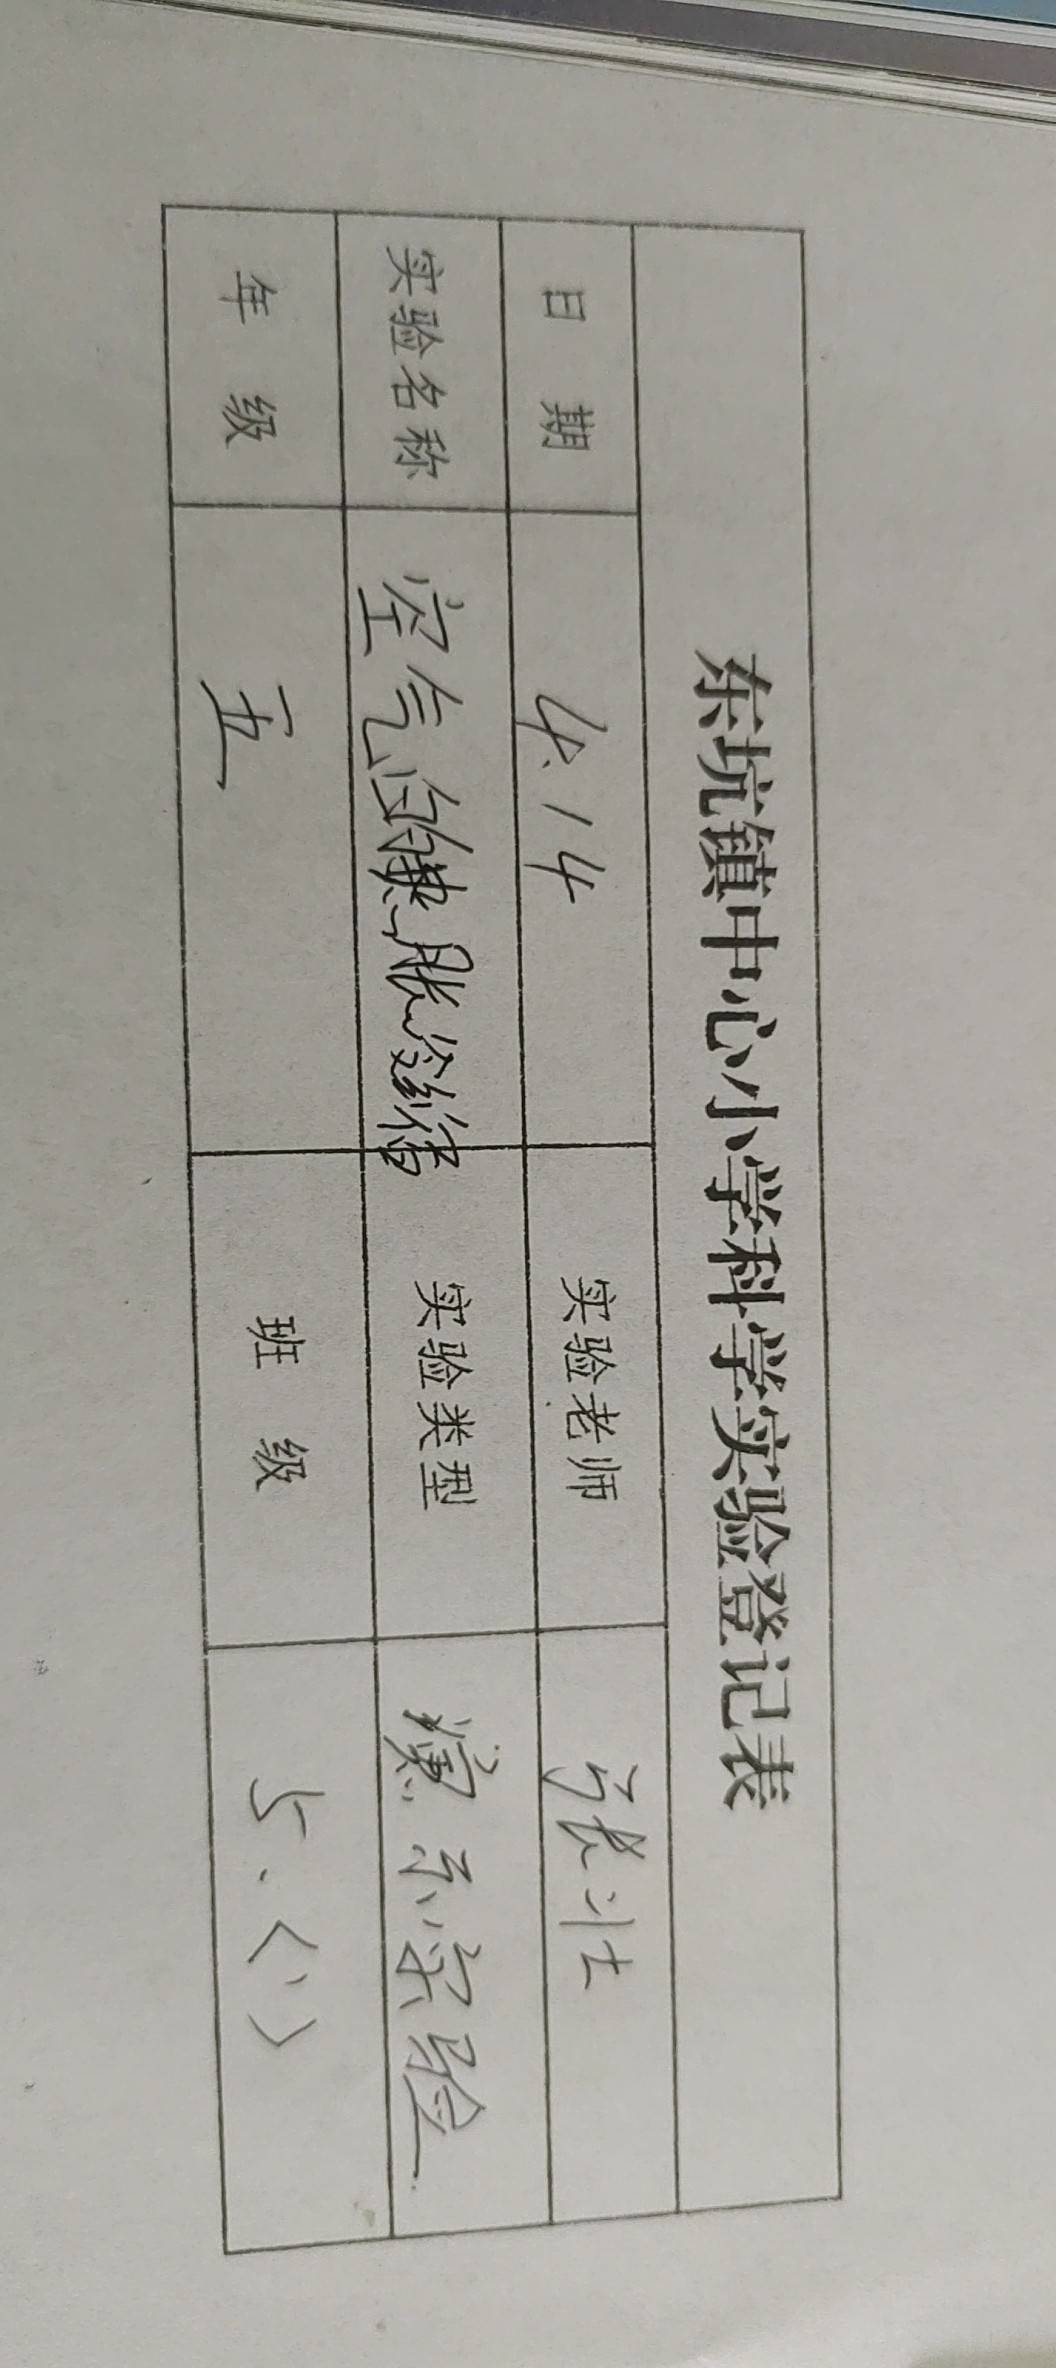 东坑镇中心小学科学实验登记表
日 期 4.14 实验老师 张壮
实验名称 空气的热胀冷缩 实验类型 演示实验
年 级 五 班 级 5.(1)